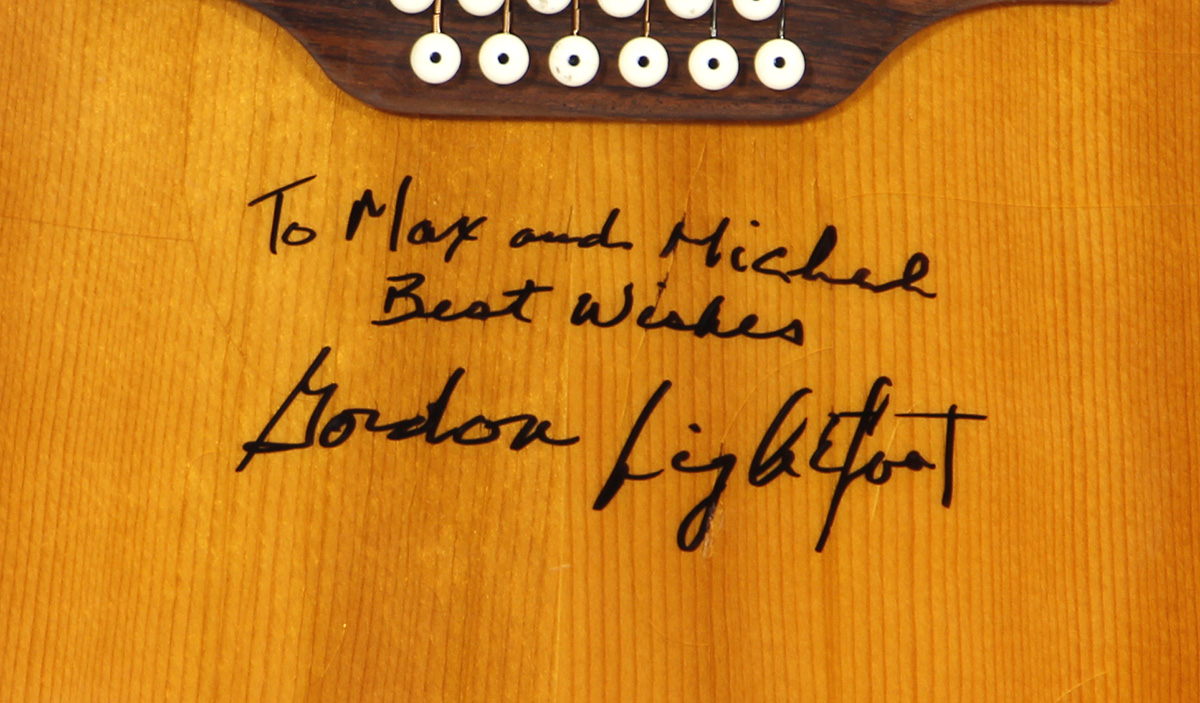 To Max and Michel
Best Wishes
Gordon Lightfoot